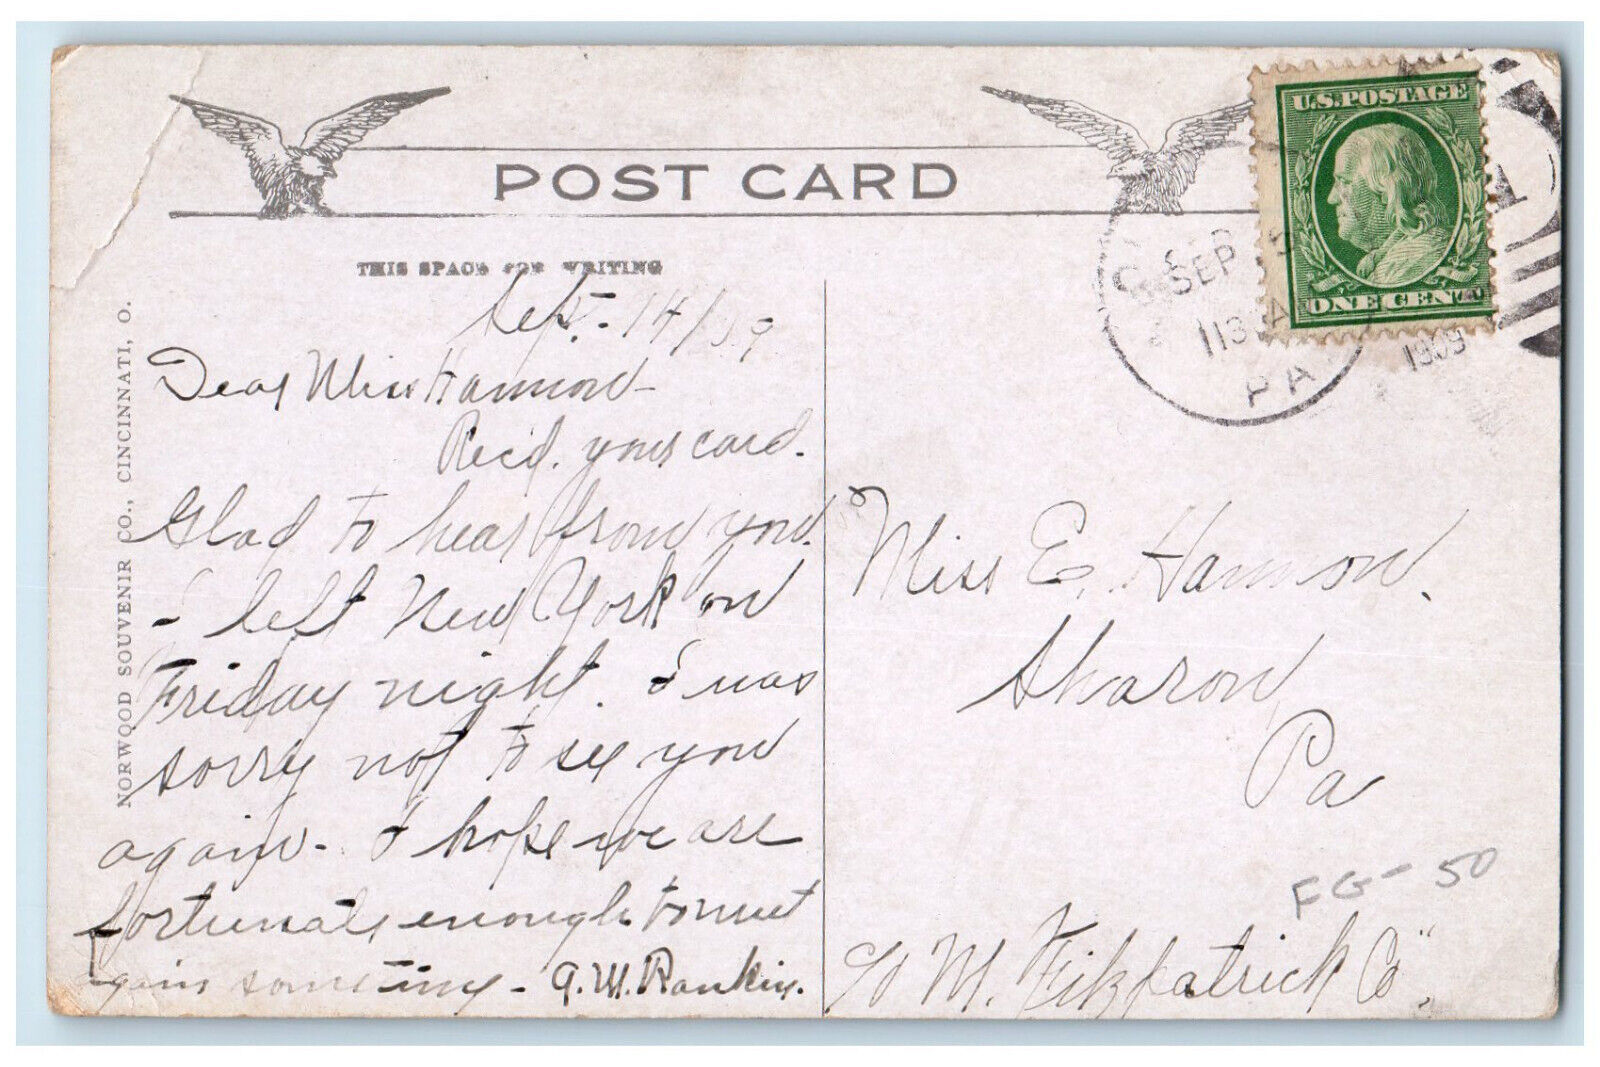 POST CARD
THIS SPACE FOR WRITING
U.S.POSTAGE
ONE CENT
SEP
PA
1909
1
NORWOOD SOUVENIR CO., CINCINNATI, O.
Sept. 14/09
Dear Miss Hannon-
Rec'd. your card.
Glad to hear from you.
I left New York on
Friday night. I was
sorry not to see you
again- I hope we are
fortunate enough to meet
again sometime - A.M. Rankin.
Miss E. Hannon.
Sharon,
Pa
FG-50
c/o M. Fitzpatrick Co",